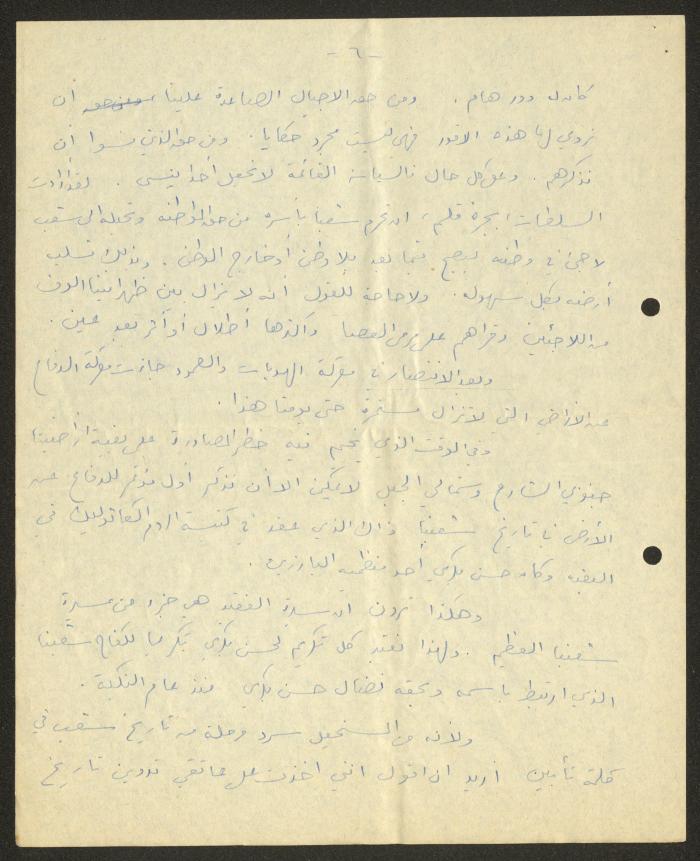 - ٦ -
كان له دور هام . ومن حق الاجيال الصاعدة علينا ان
نروي لها هذه الامور فهي ليست مجرد حكايا . ومن حق الذين نسوا أن
نذكرهم . وعلى كل حال فالسياسة القائمة لا تجعل أحدا ينسى . لقد أرادت
السلطات ، بجرة قلم ، ان تحرم شعبا بأسره من حق المواطنة وتحيله الى شعب
لاجئ في وطنه ليصبح فيما بعد بلا وطن أو خارج الوطن . وبذلك تسلب
أرضه بكل سهولة . ولا حاجة للقول انه لا تزال بين ظهرانينا الوف
من اللاجئين وقراهم على مرمى العصا واكثرها أطلال أو أثر بعد عين .
وبعد الانتصار في معركة الهويات والصمود جاءت معركة الدفاع
عن الأراضي التي لا تزال مستمرة حتى يومنا هذا .
وفي الوقت الذي يخيم فيه خطر المصادرة على بقية أراضينا
جنوبي الشارع وشمالي الجبل لا يمكن الا أن نذكر أول مؤتمر للدفاع عن
الأرض في تاريخ شعبنا ذاك الذي عقد في كنيسة الروم الكاثوليك في
البقيعة وكان حسن بكري أحد منظميه البارزين .
وهكذا ترون ان سيرة الفقيد هي جزء من مسيرة
شعبنا العظيم . ولهذا نعتبر كل تكريم لحسن بكري تكريما لكفاح شعبنا
الذي ارتبط باسمه وبحقه نضال حسن بكري منذ عام النكبة .
ولأنه من المستحيل سرد مرحلة من تاريخ شعب في
كلمة تأبين اريد ان اقول انني اخذت على عاتقي تدوين تاريخ